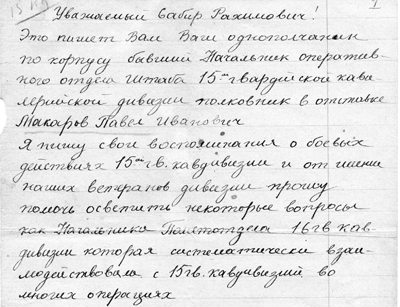 15 КД 1
Уважаемый Сабир Рахимович!
Это пишет Вам Ваш однополчанин
по корпусу бывший Начальник оператив-
ного отдела Штаба 15ой гвардейской кава
лерийской дивизии полковник в отставке
Макаров Павел Иванович
Я пишу свои воспоминания о боевых
действиях 15ой гв. кавдивизии и от имени
наших ветеранов дивизии прошу
помочь осветить некоторые вопросы
как Начальника Политотдела 16 гв кав-
дивизии которая систематически взаи-
модействовала с 15 гв. кавдивизий во
многих операциях